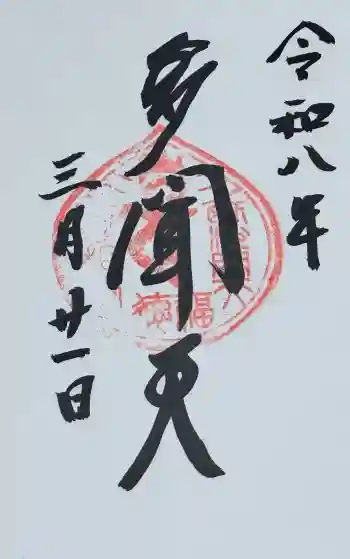 令和八年
多聞天
三月廿一日